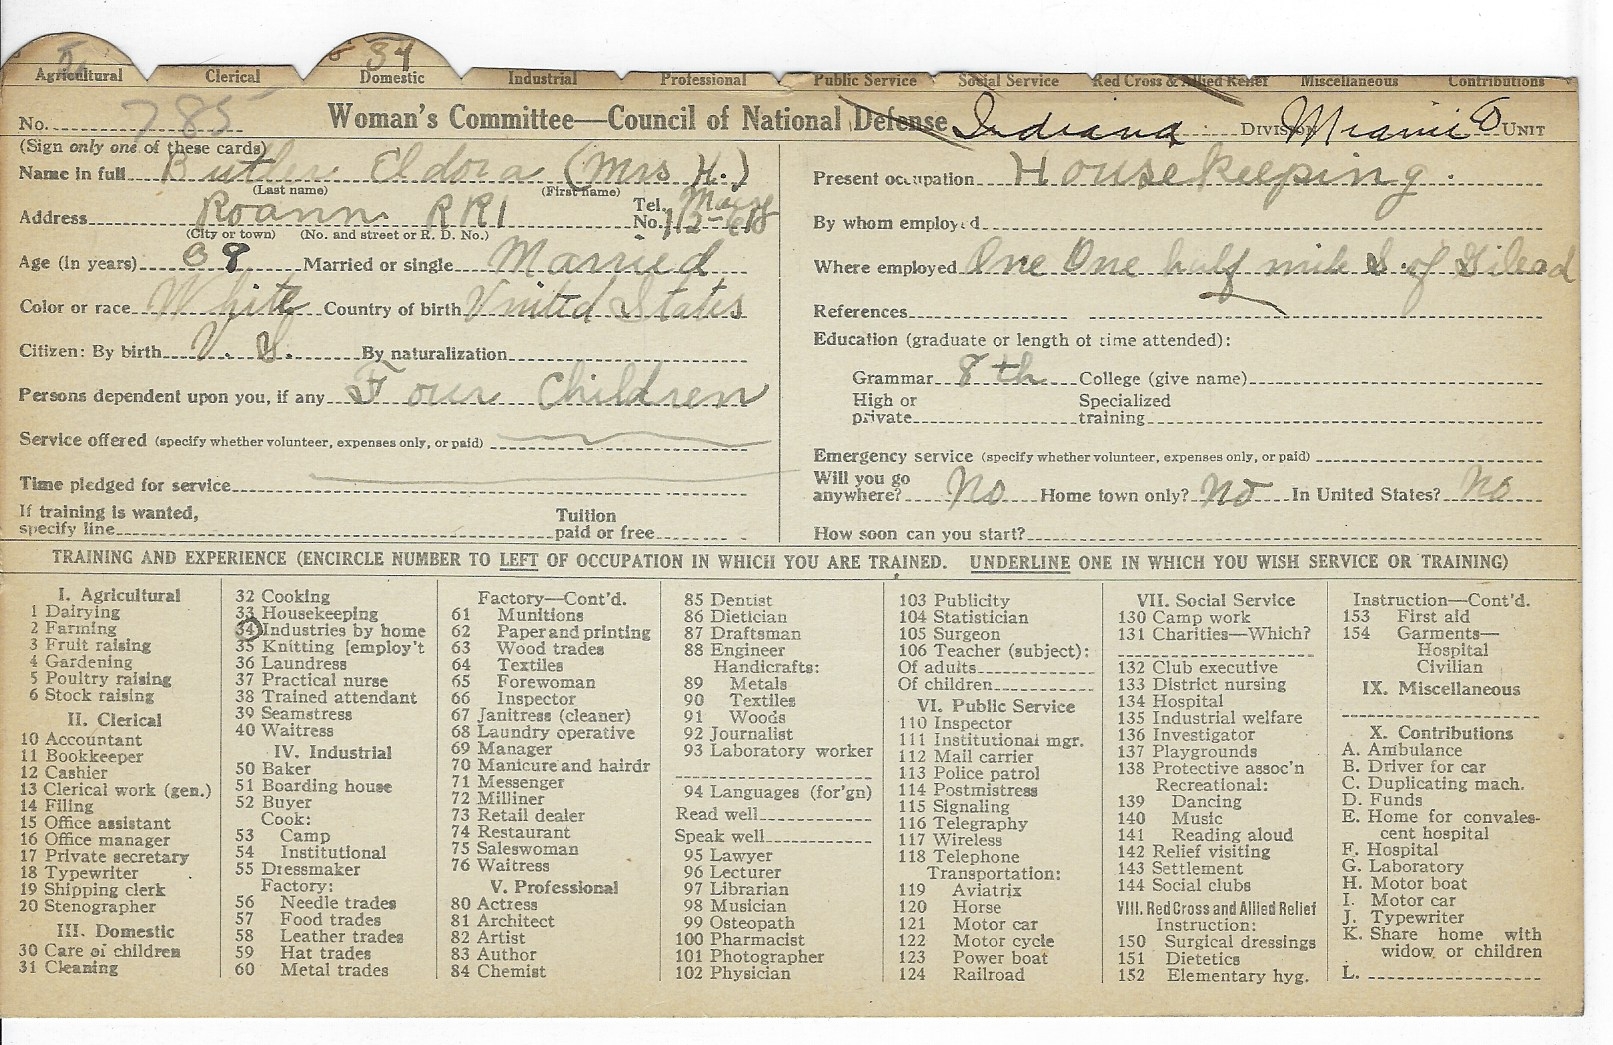 34
Agricultural Clerical Domestic Industrial Professional Public Service Social Service Red Cross & Allied Relief Miscellaneous Contributions
No. 785
Woman's Committee—Council of National Defense Indiana DIVISION Miami UNIT
(Sign only one of these cards)
Name in full Butler Eldora (Mrs H.)
(Last name) (First name)
Address Roann RR1 Tel. No. 112-618
(City or town) (No. and street or R. D. No.)
Age (in years) 38 Married or single Married
Color or race White Country of birth United States
Citizen: By birth U. S. By naturalization
Persons dependent upon you, if any Four Children
Service offered (specify whether volunteer, expenses only, or paid)
Time pledged for service
If training is wanted, specify line Tuition paid or free
Present occupation Housekeeping.
By whom employed
Where employed One One half mile S. of Gilead
References
Education (graduate or length of time attended):
Grammar 8th College (give name)
High or private Specialized training
Emergency service (specify whether volunteer, expenses only, or paid)
Will you go anywhere? No Home town only? No In United States? No
How soon can you start?
TRAINING AND EXPERIENCE (ENCIRCLE NUMBER TO LEFT OF OCCUPATION IN WHICH YOU ARE TRAINED. UNDERLINE ONE IN WHICH YOU WISH SERVICE OR TRAINING)
I. Agricultural
1 Dairying
2 Farming
3 Fruit raising
4 Gardening
5 Poultry raising
6 Stock raising
II. Clerical
10 Accountant
11 Bookkeeper
12 Cashier
13 Clerical work (gen.)
14 Filing
15 Office assistant
16 Office manager
17 Private secretary
18 Typewriter
19 Shipping clerk
20 Stenographer
III. Domestic
30 Care of children
31 Cleaning
32 Cooking
33 Housekeeping
34 Industries by home
35 Knitting [employ't
36 Laundress
37 Practical nurse
38 Trained attendant
39 Seamstress
40 Waitress
IV. Industrial
50 Baker
51 Boarding house
52 Buyer
Cook:
53 Camp
54 Institutional
55 Dressmaker
Factory:
56 Needle trades
57 Food trades
58 Leather trades
59 Hat trades
60 Metal trades
Factory—Cont'd.
61 Munitions
62 Paper and printing
63 Wood trades
64 Textiles
65 Forewoman
66 Inspector
67 Janitress (cleaner)
68 Laundry operative
69 Manager
70 Manicure and hairdr
71 Messenger
72 Milliner
73 Retail dealer
74 Restaurant
75 Saleswoman
76 Waitress
V. Professional
80 Actress
81 Architect
82 Artist
83 Author
84 Chemist
85 Dentist
86 Dietician
87 Draftsman
88 Engineer
Handicrafts:
89 Metals
90 Textiles
91 Woods
92 Journalist
93 Laboratory worker
94 Languages (for'gn)
Read well
Speak well
95 Lawyer
96 Lecturer
97 Librarian
98 Musician
99 Osteopath
100 Pharmacist
101 Photographer
102 Physician
103 Publicity
104 Statistician
105 Surgeon
106 Teacher (subject):
Of adults
Of children
VI. Public Service
110 Inspector
111 Institutional mgr.
112 Mail carrier
113 Police patrol
114 Postmistress
115 Signaling
116 Telegraphy
117 Wireless
118 Telephone
Transportation:
119 Aviatrix
120 Horse
121 Motor car
122 Motor cycle
123 Power boat
124 Railroad
VII. Social Service
130 Camp work
131 Charities—Which?
132 Club executive
133 District nursing
134 Hospital
135 Industrial welfare
136 Investigator
137 Playgrounds
138 Protective assoc'n
Recreational:
139 Dancing
140 Music
141 Reading aloud
142 Relief visiting
143 Settlement
144 Social clubs
VIII. Red Cross and Allied Relief
Instruction:
150 Surgical dressings
151 Dietetics
152 Elementary hyg.
Instruction—Cont'd.
153 First aid
154 Garments—
Hospital
Civilian
IX. Miscellaneous
X. Contributions
A. Ambulance
B. Driver for car
C. Duplicating mach.
D. Funds
E. Home for convales-
cent hospital
F. Hospital
G. Laboratory
H. Motor boat
I. Motor car
J. Typewriter
K. Share home with
widow or children
L.